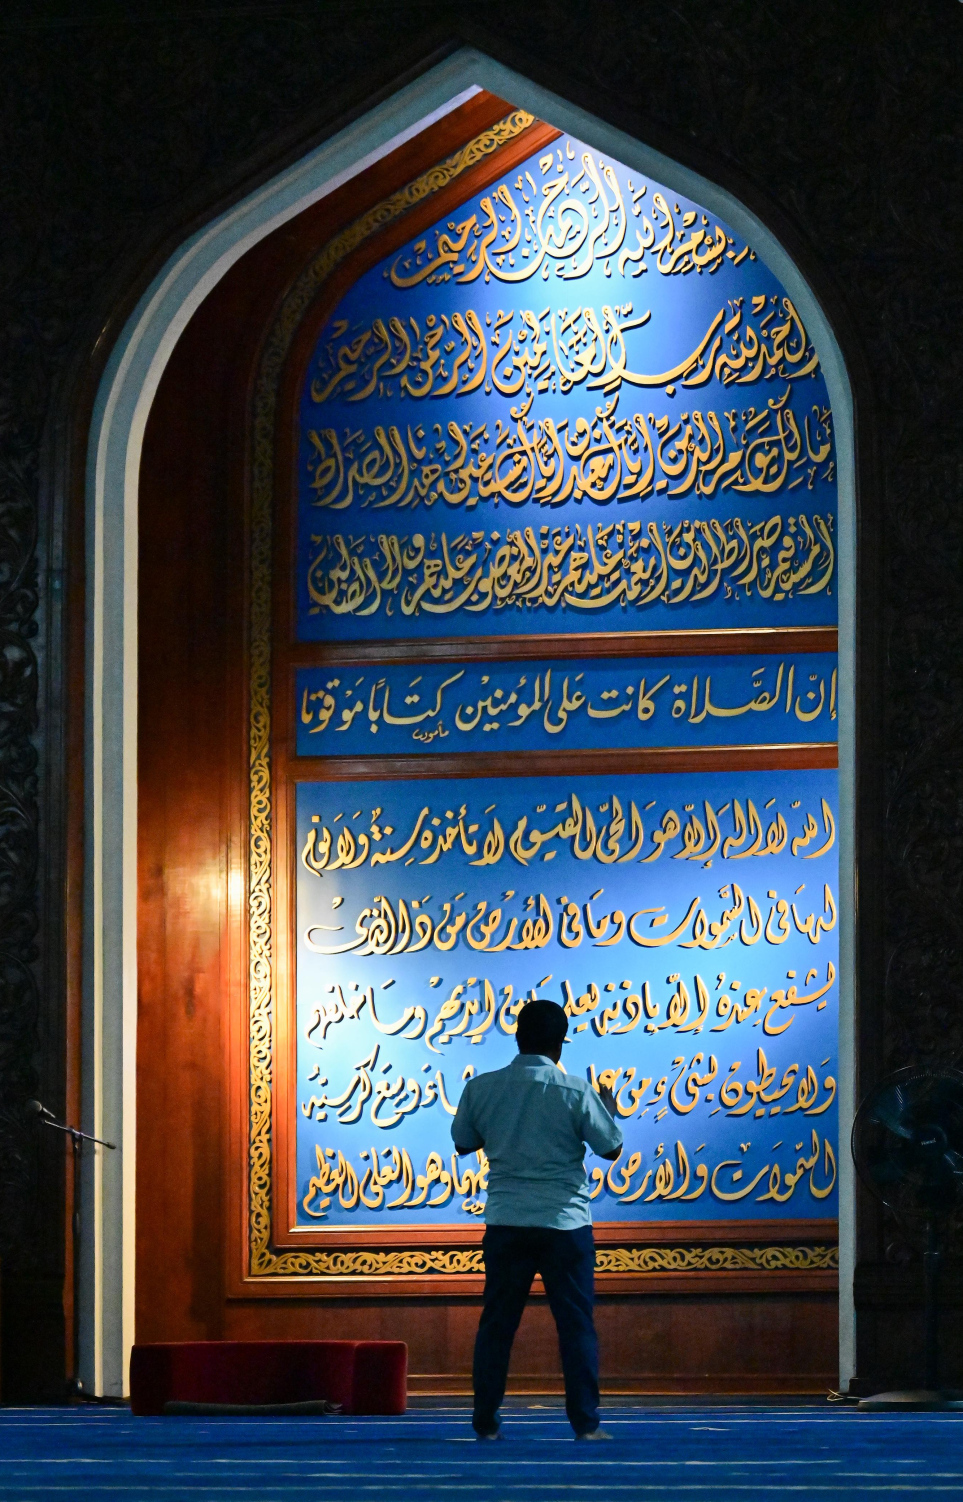 بسم الله الرحمن الرحيم
الحمد لله رب العالمين الرحمن الرحيم
مالك يوم الدين إياك نعبد وإياك نستعين اهدنا الصراط
المستقيم صراط الذين أنعمت عليهم غير المغضوب عليهم ولا الضالين
إنّ الصَّلاة كانت عَلى المؤمنيْن كِتَابًا مَوْقوتا
مأمون
الله لاَ إله إلاّ هو الحيّ القيّوم لاَ تأخذهُ سِنةٌ وَلاَ نوم
له مَا في السَّموات ومَا في الأرْض مَنْ ذَا الّذي
يشفع عِندهُ إلاّ باذنه يعلم أيْديهمْ ومَا خلفهم
وَلا يحيطونَ بشيْءٍ مِنْ شاءَ وسِعَ كرْسيّه
السّموَات وَالأرض وهو العَليّ العَظيم